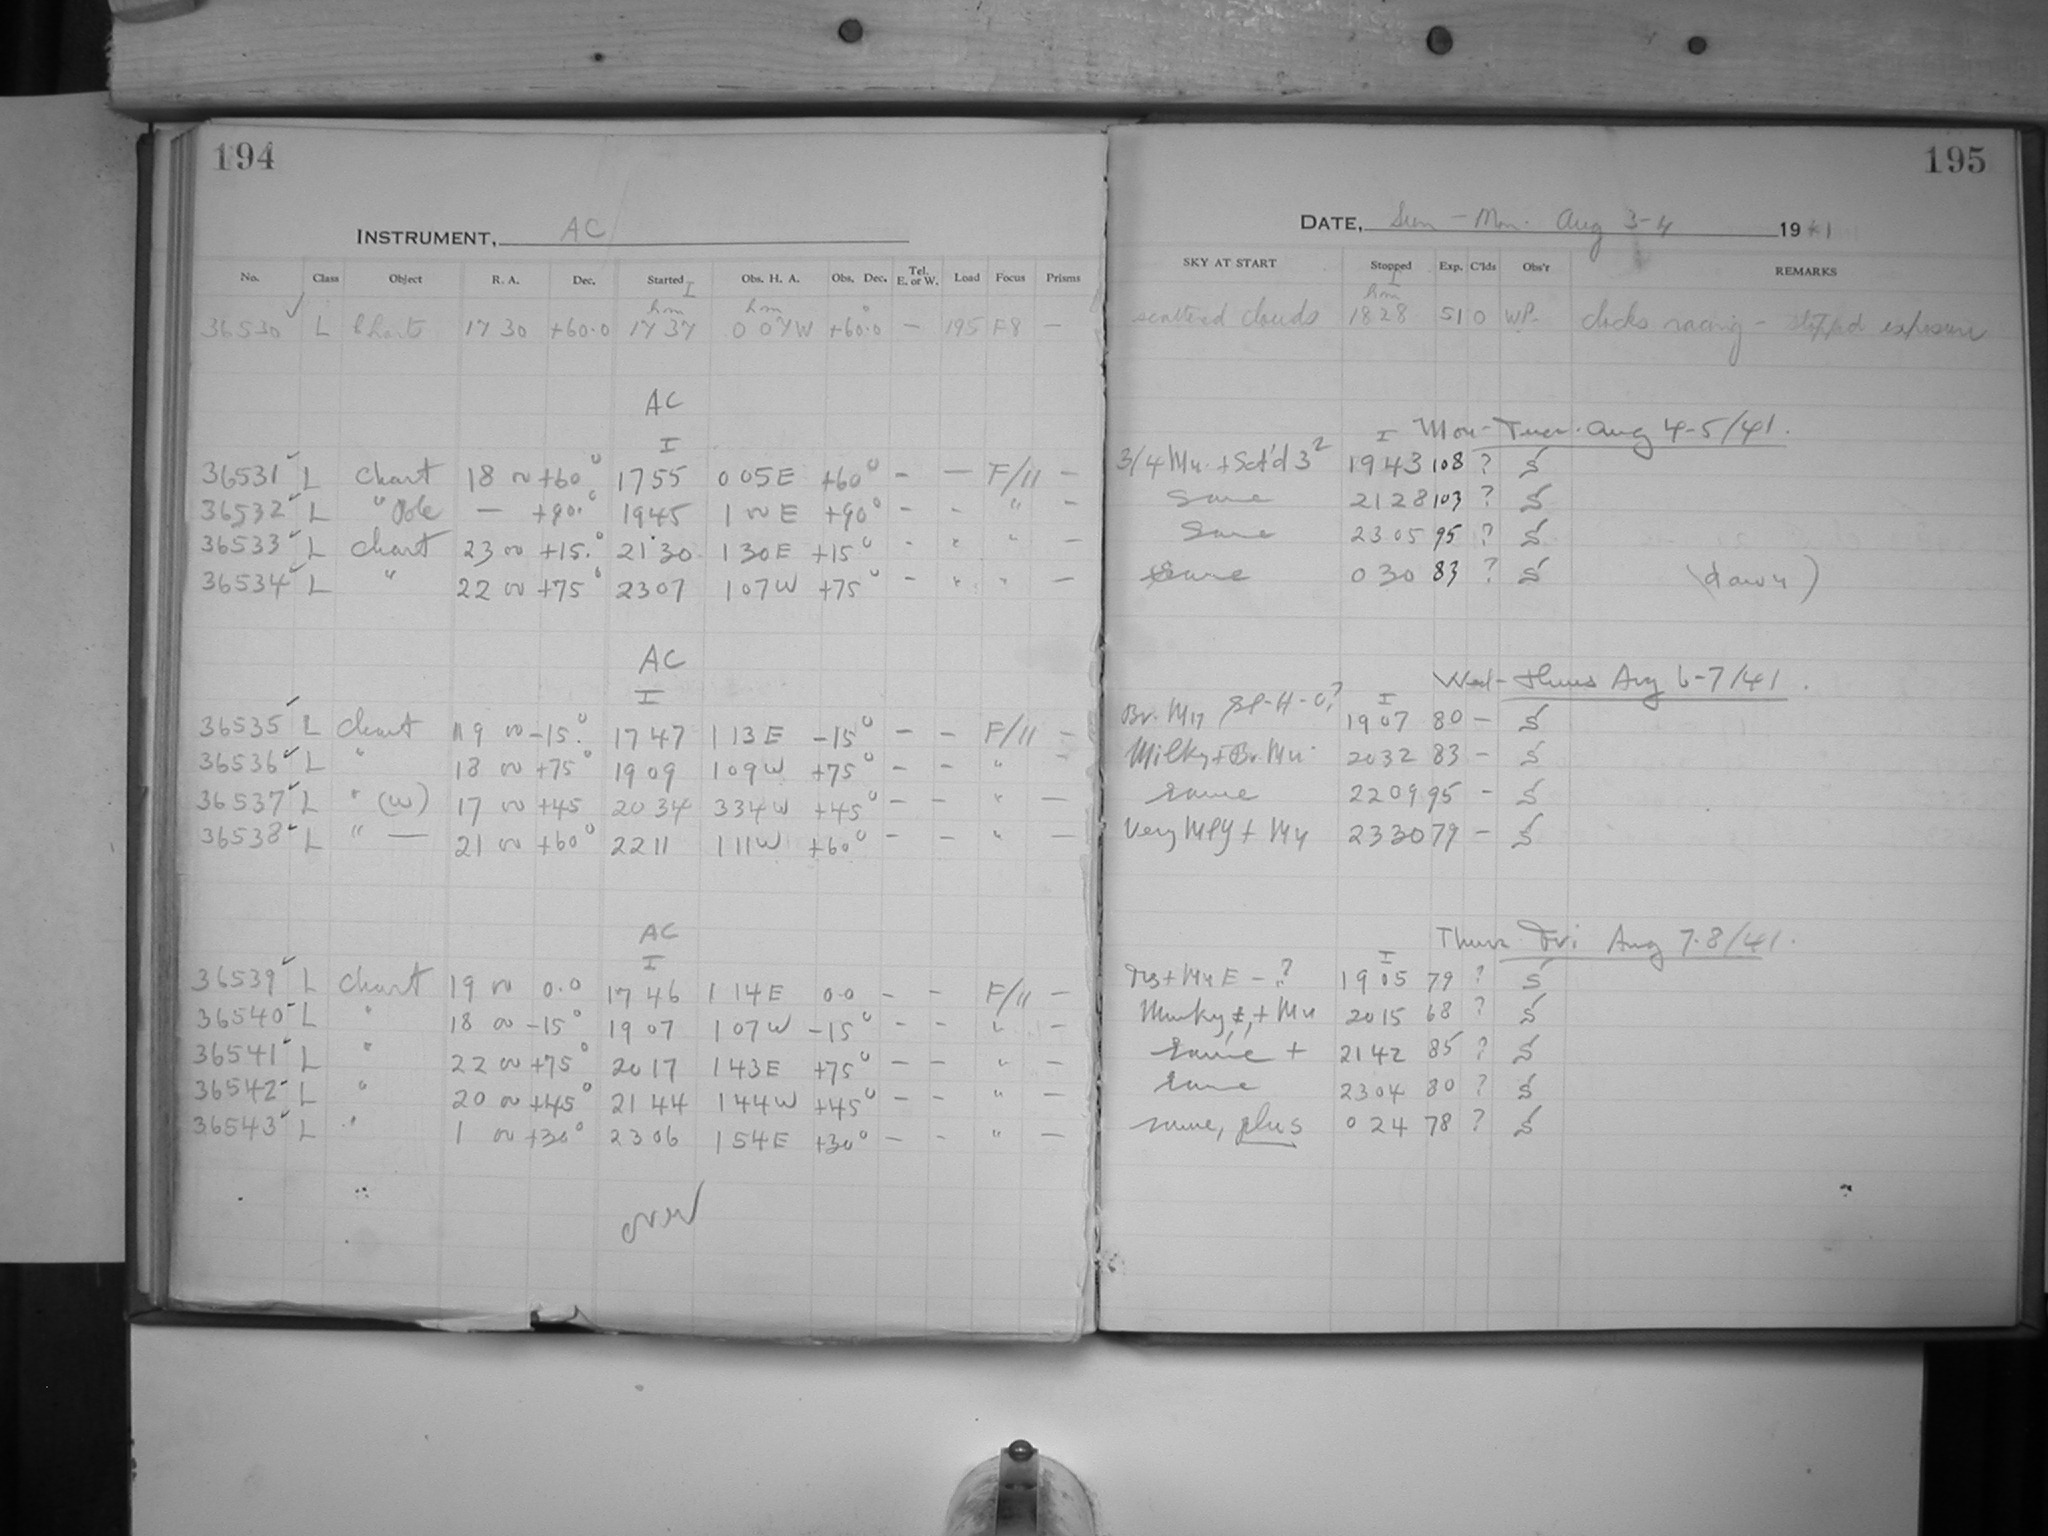 194
INSTRUMENT, AC
No. Class Object R. A. Dec. Started Obs. H. A. Obs. Dec. Tel. E. or W. Load Focus Prisms
I
hm hm °
36530 ✓ L Charts 17 30 +60.0 17 37 0 07W +60.0 — 195 F8 —
AC
I
36531 ✓ L Chart 18 00 +60° 1755 0 05E +60° - — F/11 -
36532 ✓ L " Pole — +90.° 1945 1 00 E +90° - - " -
36533 ✓ L Chart 23 00 +15.° 21 30 1 30E +15° - " " -
36534 ✓ L " 22 00 +75° 2307 1 07W +75° - " " —
AC
I
36535 ✓ L Chart 19 00 -15.° 1747 1 13E -15° - - F/11 -
36536 ✓ L " 18 00 +75° 1909 1 09W +75° - - " -
36537 ✓ L " (W) 17 00 +45 2034 3 34W +45° - - " —
36538 ✓ L " — 21 00 +60° 2211 1 11W +60° - - " —
AC
I
36539 ✓ L Chart 19 00 0.0 1746 1 14E 0.0 - - F/11 —
36540 ✓ L " 18 00 -15° 1907 1 07W -15° - - " —
36541 ✓ L " 22 00 +75° 2017 1 43E +75° - - " —
36542 ✓ L " 20 00 +45° 2144 1 44W +45° - - " —
36543 ✓ L " 1 00 +30° 2306 1 54E +30° - - " —
over
195
DATE, Sun - Mon. Aug 3-4 1941
SKY AT START Stopped Exp. C'lds Obs'r REMARKS
I
hm
scattered clouds 1828 51 0 WP. clocks racing - stopped exposure
I Mon-Tues. Aug 4-5/41.
3/4 Mn. + Sct'd 3² 1943 108 ? S
Same 2128 103 ? S
Same 2305 95 ? S
Same 0 30 83 ? S (dawn)
I Wed-Thurs Aug 6-7/41.
Br. Mn 1907 80 - S
Milky + Br. Mn 2032 83 - S
same 2209 95 - S
Very Mlky + Mn 2330 79 - S
I Thurs Fri Aug 7-8/41.
+ Mn E - ? 1905 79 ? S
Murky, + Mn 2015 68 ? S
same + 2142 85 ? S
same 2304 80 ? S
same, plus 0 24 78 ? S